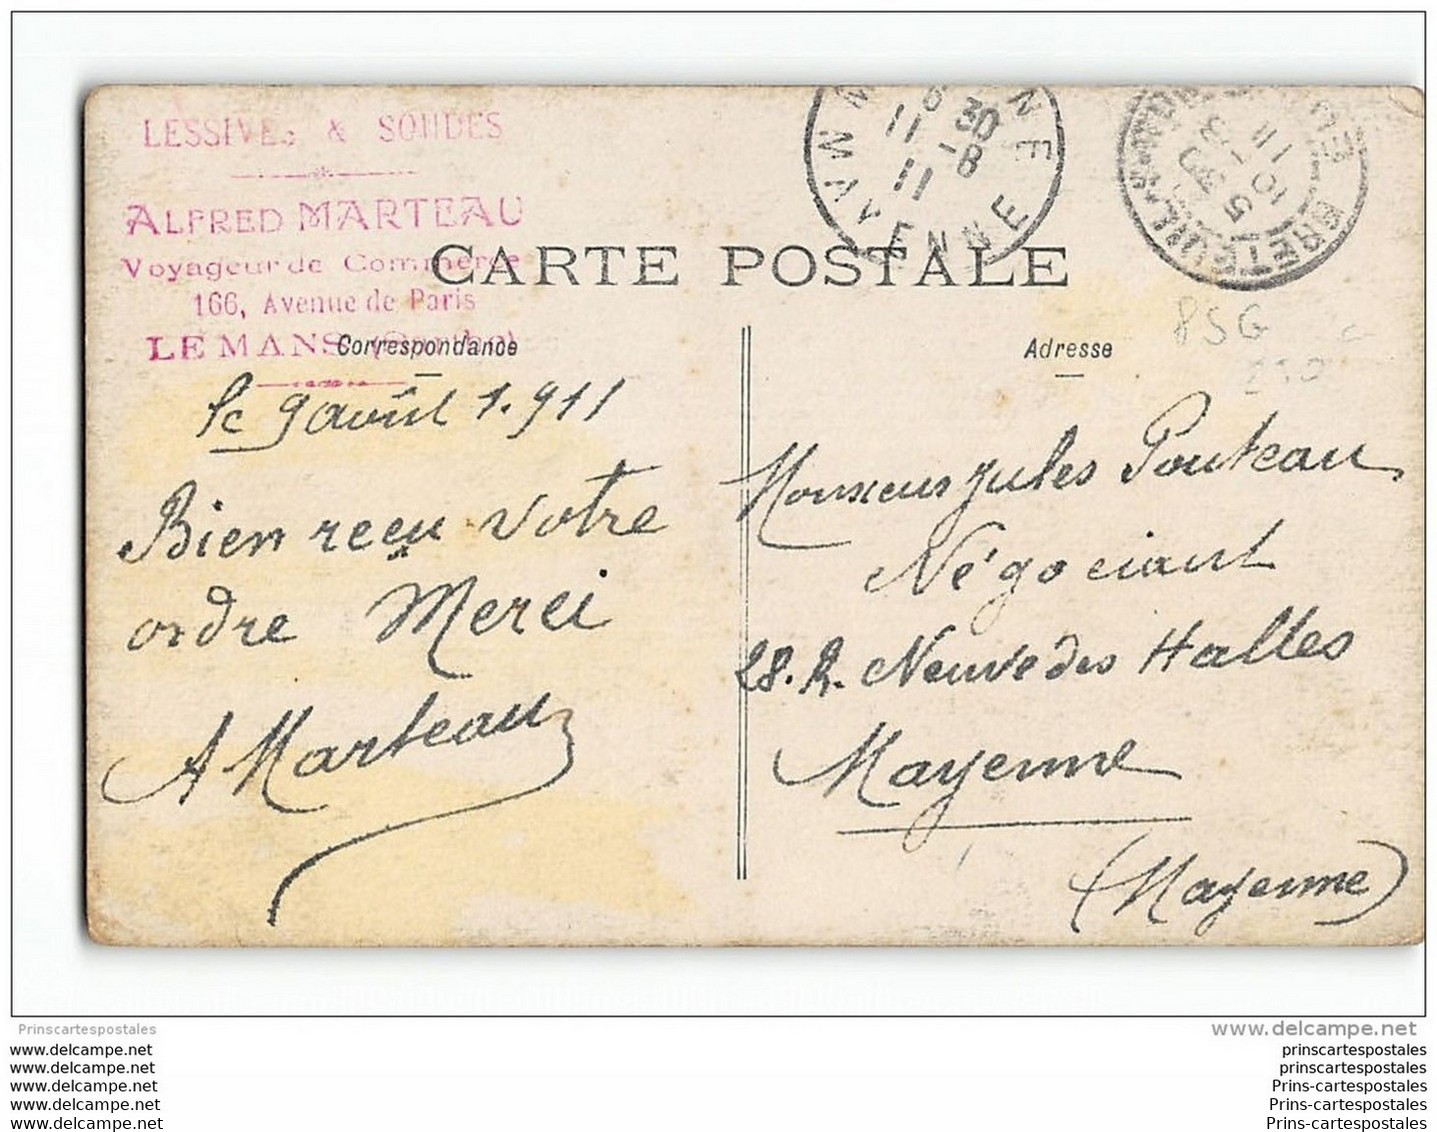 LESSIVES & SOUDES
ALFRED MARTEAU
Voyageur de Commerce
166, Avenue de Paris
LE MANS (Sarthe)
CARTE POSTALE
Correspondance
Adresse
MAYENNE
6 30
11 -8
11
MAYENNE
BRETEUIL-S-
EURE
5 30
10 - 8
11
PSG
250
le 9 août 1.911
Bien reçu votre
ordre Merci
A Marteau
Monsieur Jules Pouteau
Négociant
28. R. Neuve des Halles
Mayenne
(Mayenne)
Prinscartespostales
www.delcampe.net
www.delcampe.net
www.delcampe.net
www.delcampe.net
www.delcampe.net
www.delcampe.net
prinscartespostales
prinscartespostales
Prins-cartespostales
Prins-cartespostales
Prins-cartespostales